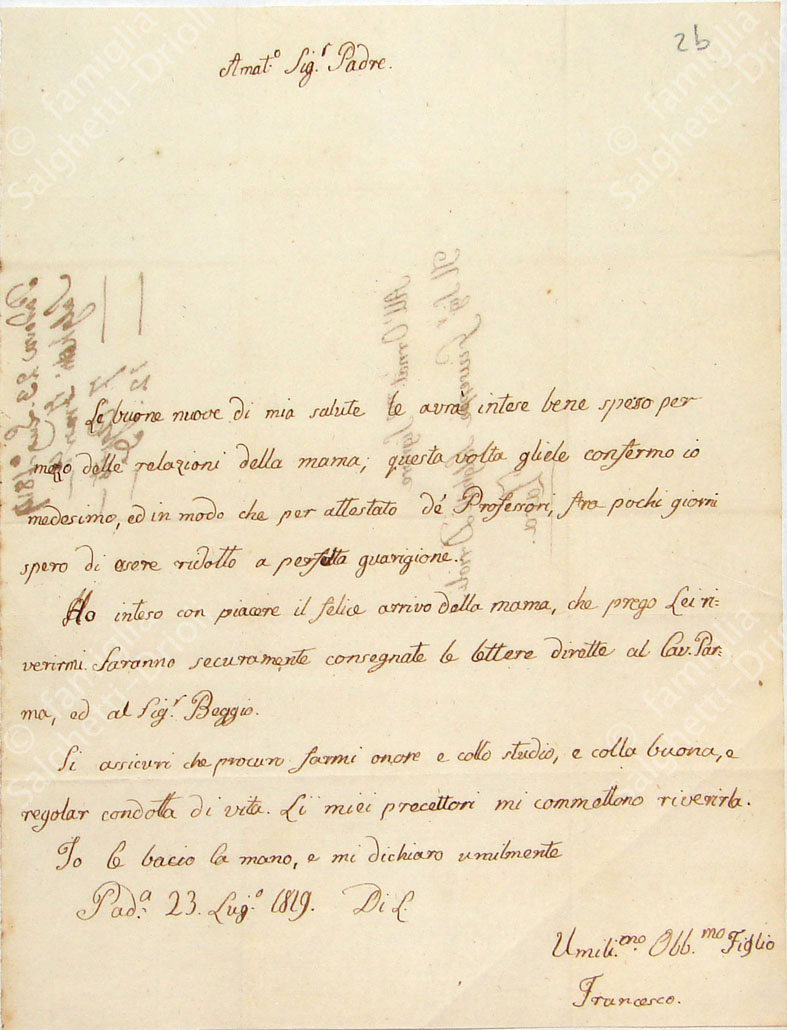 26
Amat.º Sig.r Padre.
Le buone nuove di mia salute le avrà intese bene spesso per
mezzo delle relazioni della mama; questa volta gliele confermo io
medesimo, ed in modo che per attestato dé Professori, fra pochi giorni
spero di essere ridotto a perfetta guarigione.
Ho inteso con piacere il felice arrivo della mama, che prego Lei ri=
verirmi. Saranno securamente consegnate le lettere dirette al Cav. Par=
ma, ed al Sig.r Beggio.
Si assicuri che procuro farmi onore e collo studio, e colla buona, e
regolar condotta di vita. Li miei precettori mi commettono riverirla.
Io le bacio la mano, e mi dichiaro umilmente
Pad.a 23. Lug.º 1819. Di L.
Umili.mo Obb.mo Figlio
Francesco.
© famiglia
Salghetti-Drioli
© famiglia
Salghetti-Drioli
© famiglia
Salghetti-Drioli
© famiglia
Salghetti-Drioli